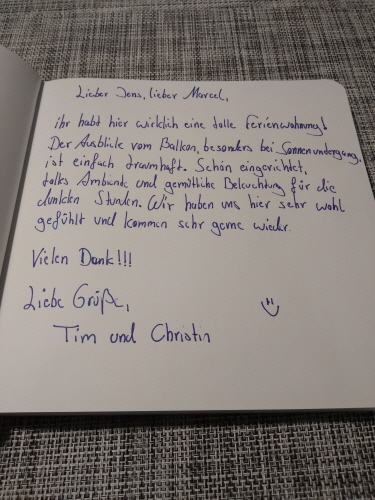 Lieber Jens, lieber Marcel,
ihr habt hier wirklich eine tolle Ferienwohnung!
Der Ausblick vom Balkon, besonders bei Sonnenuntergang,
ist einfach traumhaft. Schön eingerichtet,
tolles Ambiente und gemütliche Beleuchtung für die
dunklen Stunden. Wir haben uns hier sehr wohl
gefühlt und kommen sehr gerne wieder.
Vielen Dank!!!
Liebe Grüße,
Tim und Christin